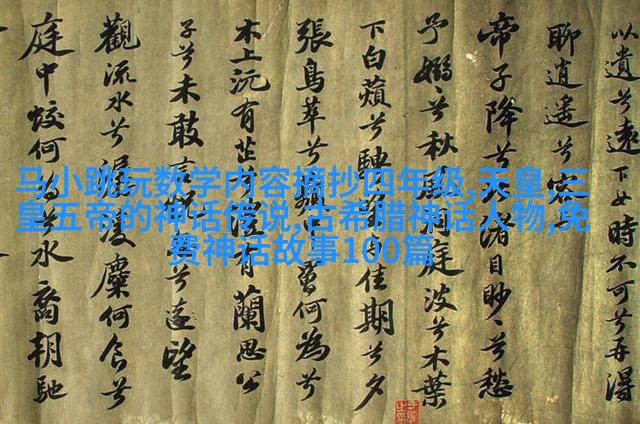 马小跳玩数学内容摘抄四年级,天皇,三
皇五帝的神话传说,古希腊神话人物,免
费神话故事100篇
以遺兮遠下女時不可兮再得
聊逍遙兮容
帝子降兮渚目眇眇兮愁
予嫋兮秋庭波兮木葉
下白蘋兮騁佳期兮夕
張鳥萃兮罾何為兮
木上沅有芷有蘭思公
子兮未敢言兮遠望
觀流水兮潺湲麋何食兮
庭中蛟何為水裔朝馳